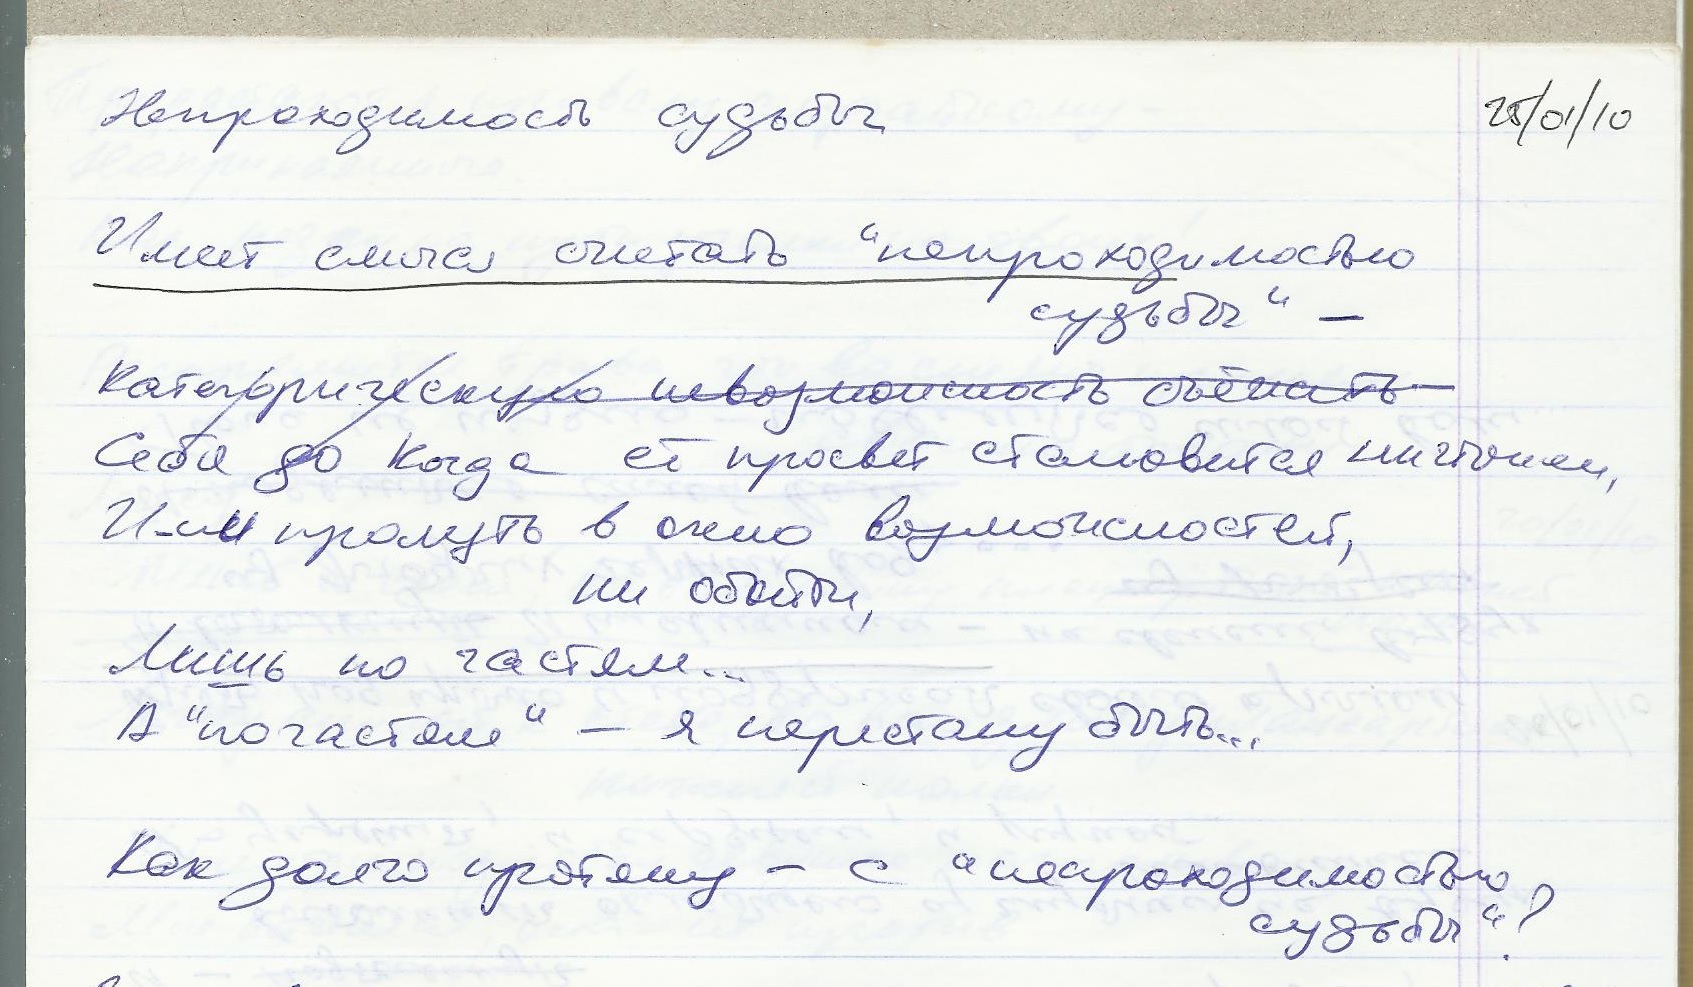 Непроходимость судьбы 25/01/10
Имеет смысл считать "непроходимостью
судьбы" —
Категорическую невозможность сжать
Себя до Когда её просвет становится ничтожен,
И-ли пролезть в окно возможностей,
ни обойти,
Лишь по частям...
А "по частям" — я перестану быть...
Как долго протяну — с "непроходимостью
судьбы"?